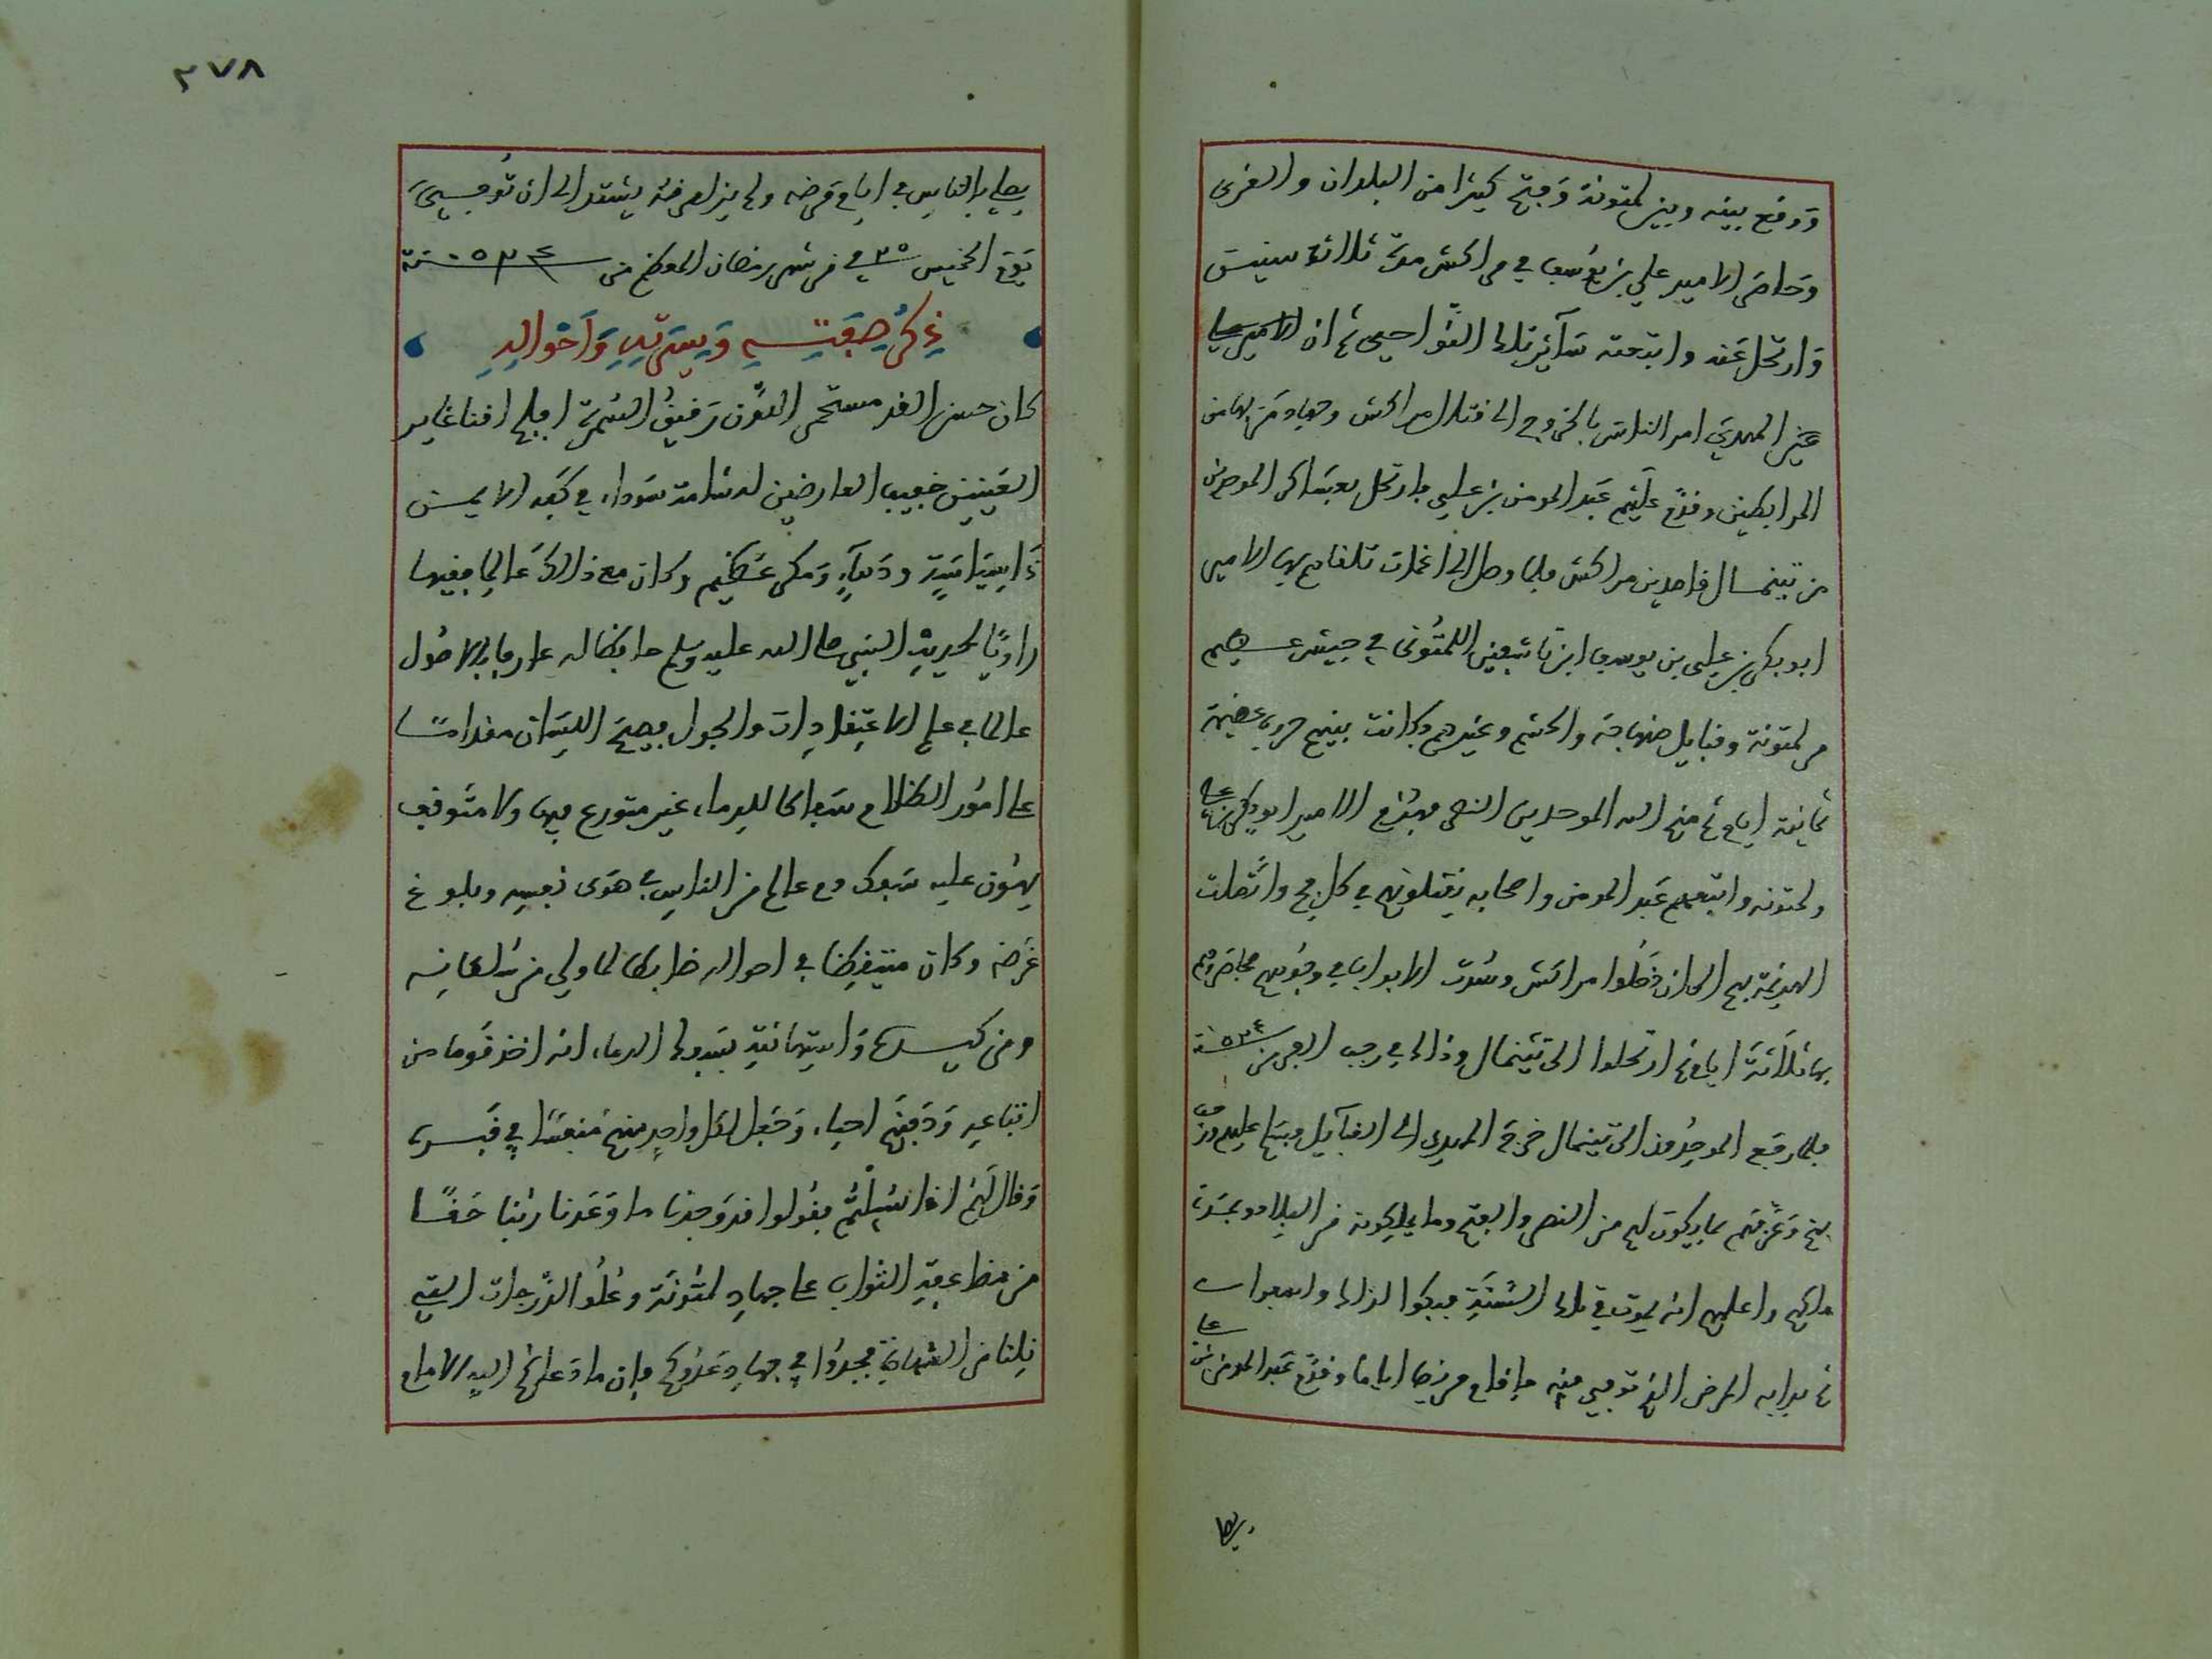 ووقع بينه وبين لمتونة وفتح كثيرا من البلدان والقرى
وحاصر الامير علي بن يوسف في مراكش مدة ثلاثة سنين
وارتحل عنه واتبعته سآئر تلك النواحي ثم ان الامير
المهدي امر الناس بالخروج الى قتال مراكش وجهاد من بها من
المرابطين وقدّم عليهم عبد المومن بن علي فارتحل بعساكر الموحدين
من تينمال قاصدين مراكش فلما وصل الى اغمات تلقاهم بها الامير
ابو بكر بن علي بن يوسف ابن تاشفين اللمتوني في جيش عظيم
من لمتونة وقبايل صنهاجة والحشم وغيرهم وكانت بينهم حروب عظيمة
ثمانية ايام ثم منح الله الموحدين النصر فهزم الامير ابو بكر بن علي
ولمتونه واتبعهم عبد المومن واصحابه يقتلونهم في كل فج واتصلت
الهزيمة بهم الى ان دخلوا مراكش وسدت الابواب في وجوههم فحاصروهم
بها ثلاثة ايام ثم ارتحلوا الى تينمال وذالك في رجب الفرد من سنة ٥٢٤
فلما رجع الموحدون الى تينمال خرج المهدي الى القبآيل وسلم عليهم
بهم وعرّفهم بما يكون لهم من النصر والفتح وما يملكونه من البلاد
واعلمهم انه يموت في تلك السنة فبكوا لذالك واسفوا
ثم بدا به المرض الذي توفي منه فاقام مريضا اياما وقدّم عبد المومن بن علي
يصلي
٢٧٨
يصلي بالناس في ايام مرضه ولم يزل مرضه يشتد الى ان توفي
يوم الخميس ٢٥ في من شهر رمضان المعظم من سنة ٥٢٤
ذكر صفته وسيرته وأحواله
كان حسن القد مستحسن اللون رقيق السمرة افلج اقنا غاير
العينين خفيف العارضين له شامة سوداء في كفه الايمن
ذا سياسة ودهآء ومكر عظيم وكان مع ذالك عالما فقيها
راويا لحديث النبي صلى الله عليه وسلم حافظا له عارفا بالاصول
عالما في علم الاعتقادات والجدل فصيح اللسان مقداما
على امور العظام سفاكا للدماء غير متورع فيها ولا متوقف
يهون عليه سفك دم عالم من الناس في هوى نفسه وبلوغ
غرضه وكان متيقظا في احواله ضابطا لما ولي من سلطانه
ومن كيده واستهانته بسفك الدماء انه اخذ قوما من
اتباعه ودفنهم احياء وجعل لكل واحد منهم منفسا في قبره
وقال لهم اذا سئلتم فقولوا قد وجدنا ما وعدنا ربنا حقا
من مضاعفة الثواب على جهاد لمتونة وعلو الدرجات التي
نلنا من الشهادة فجدوا في جهاد عدوكم فان ما دعاكم اليه الامام